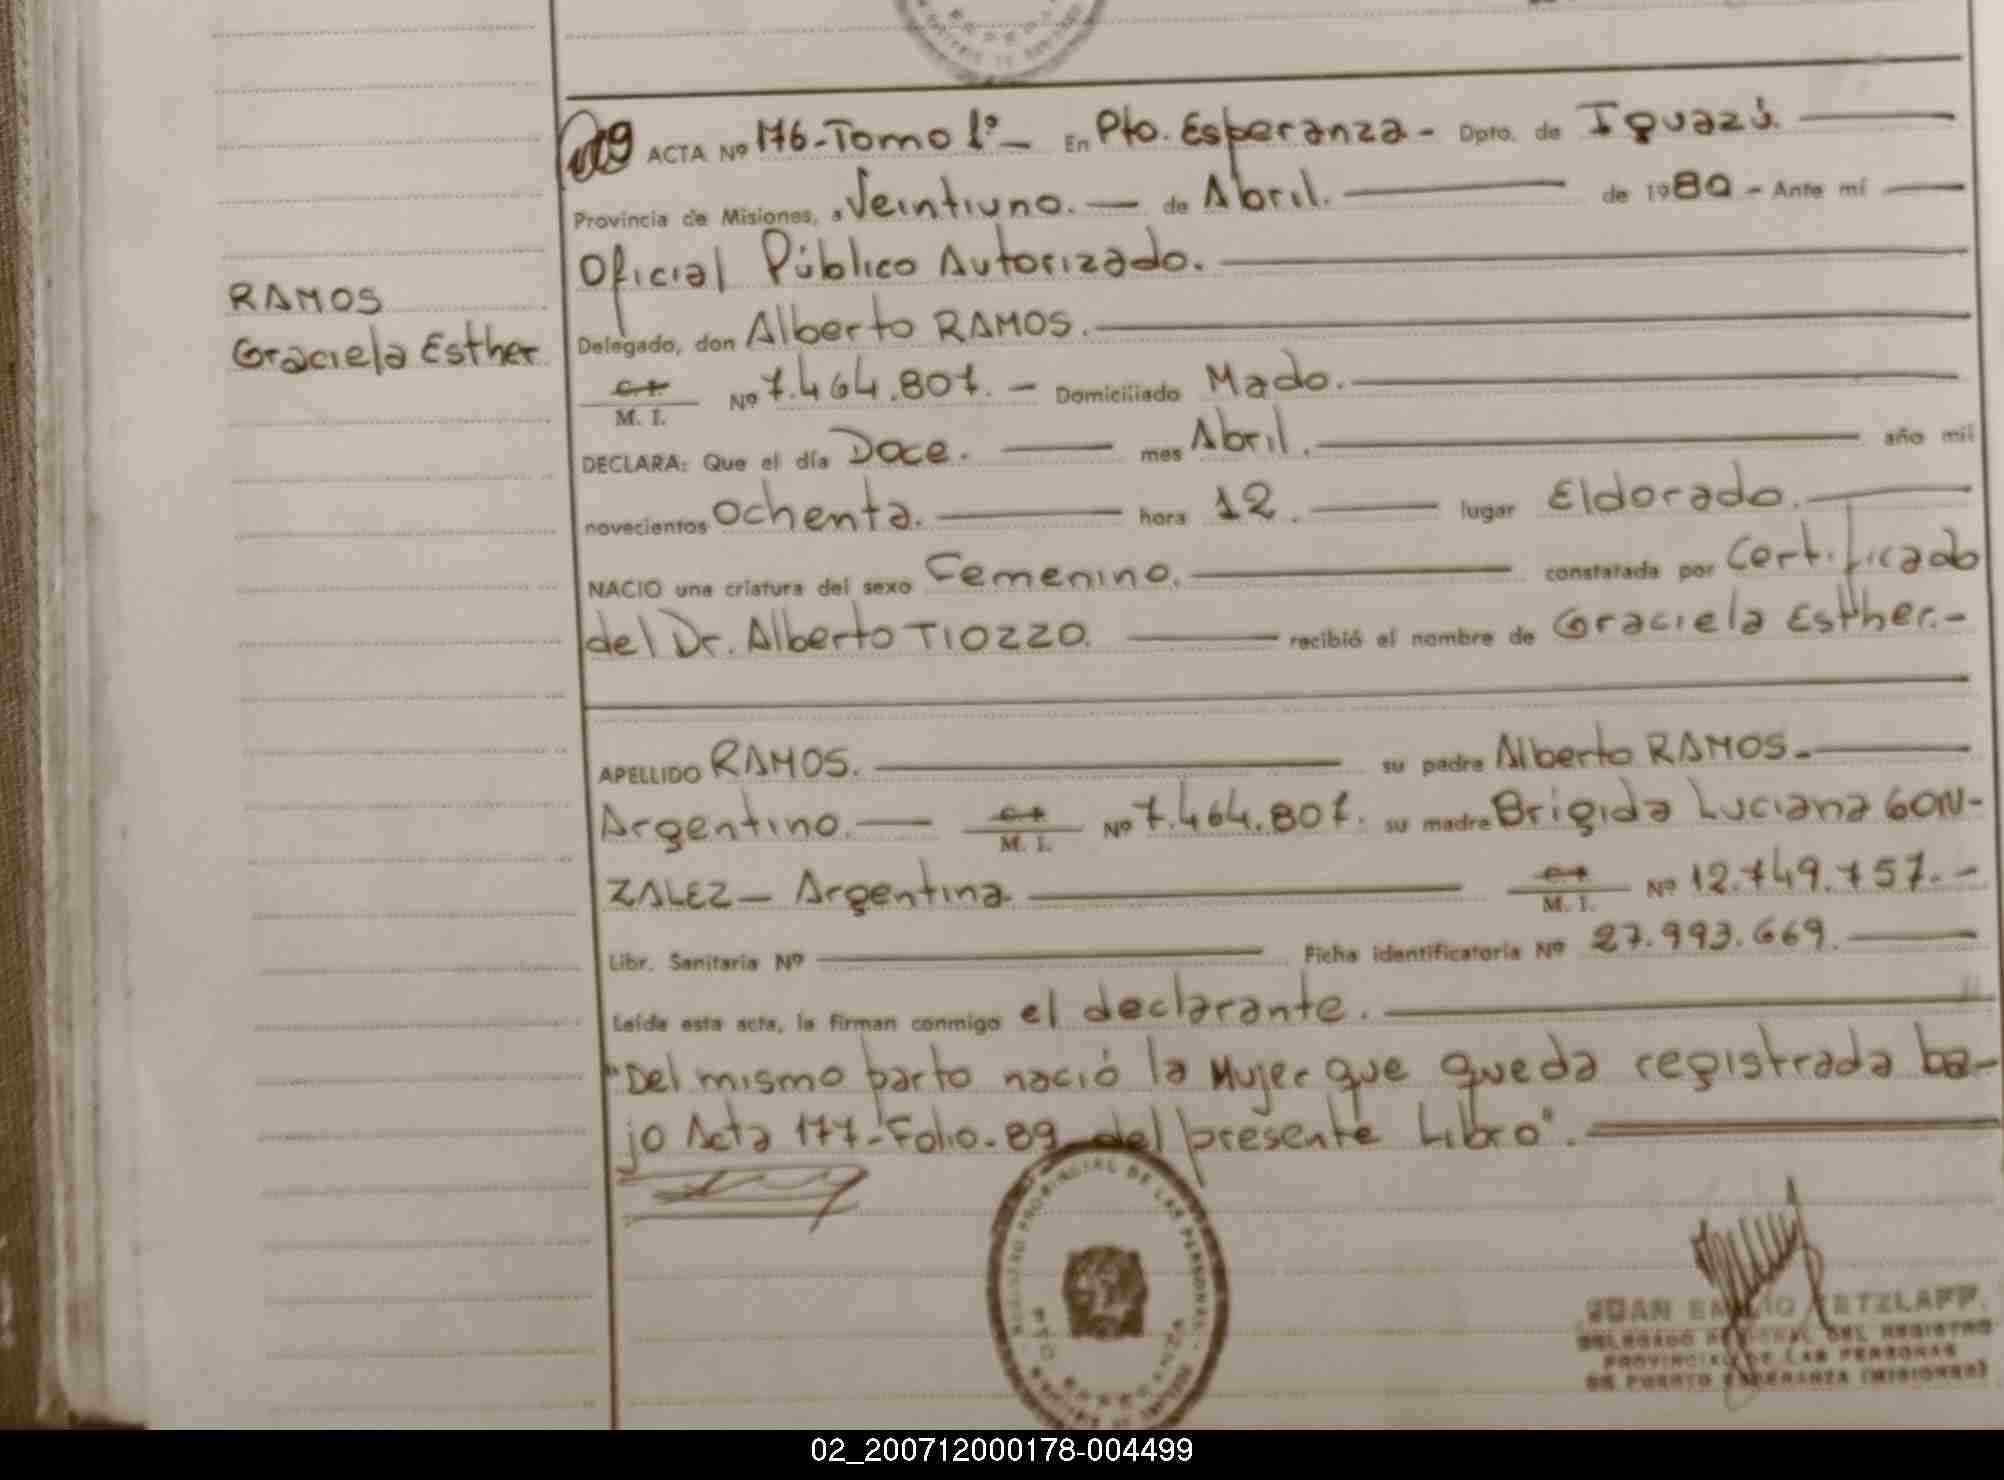 RAMOS
Graciela Esther
ACTA Nº 176-Tomo 1º - En Pto. Esperanza - Dpto. de Iguazú.
Provincia de Misiones, a Veintiuno. — de Abril. de 1980 - Ante mí
Oficial Público Autorizado.
Delegado, don Alberto RAMOS.
M. I. Nº 7.464.807. - Domiciliado Mado.
DECLARA: Que el día Doce. mes Abril. año mil
novecientos ochenta. hora 12. lugar Eldorado.
NACIO una criatura del sexo Femenino. constatada por Certificado
del Dr. Alberto TIOZZO. recibió el nombre de Graciela Esther.-
APELLIDO RAMOS. su padre Alberto RAMOS-
Argentino. M. I. Nº 7.464.807. su madre Brigida Luciana GON-
ZALEZ- Argentina. M. I. Nº 12.749.757. -
Libr. Sanitaria Nº Ficha identificatoria Nº 27.993.669.
Leída esta acta, la firman conmigo el declarante.
"Del mismo parto nació la Mujer que queda registrada ba-
jo Acta 177-Folio-89 del presente Libro".
REGISTRO PROVINCIAL DE LAS PERSONAS
PTO. ESPERANZA
JUAN EMILIO RETZLAFF
DELEGADO REGIONAL DEL REGISTRO
PROVINCIAL DE LAS PERSONAS
DE PUERTO ESPERANZA (MISIONES)
02_200712000178-004499